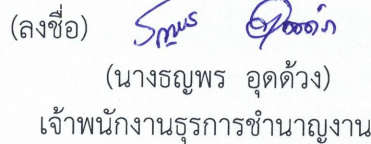 (ลงชื่อ)
(นางธญพร อุดด้วง)
เจ้าพนักงานธุรการชำนาญงาน